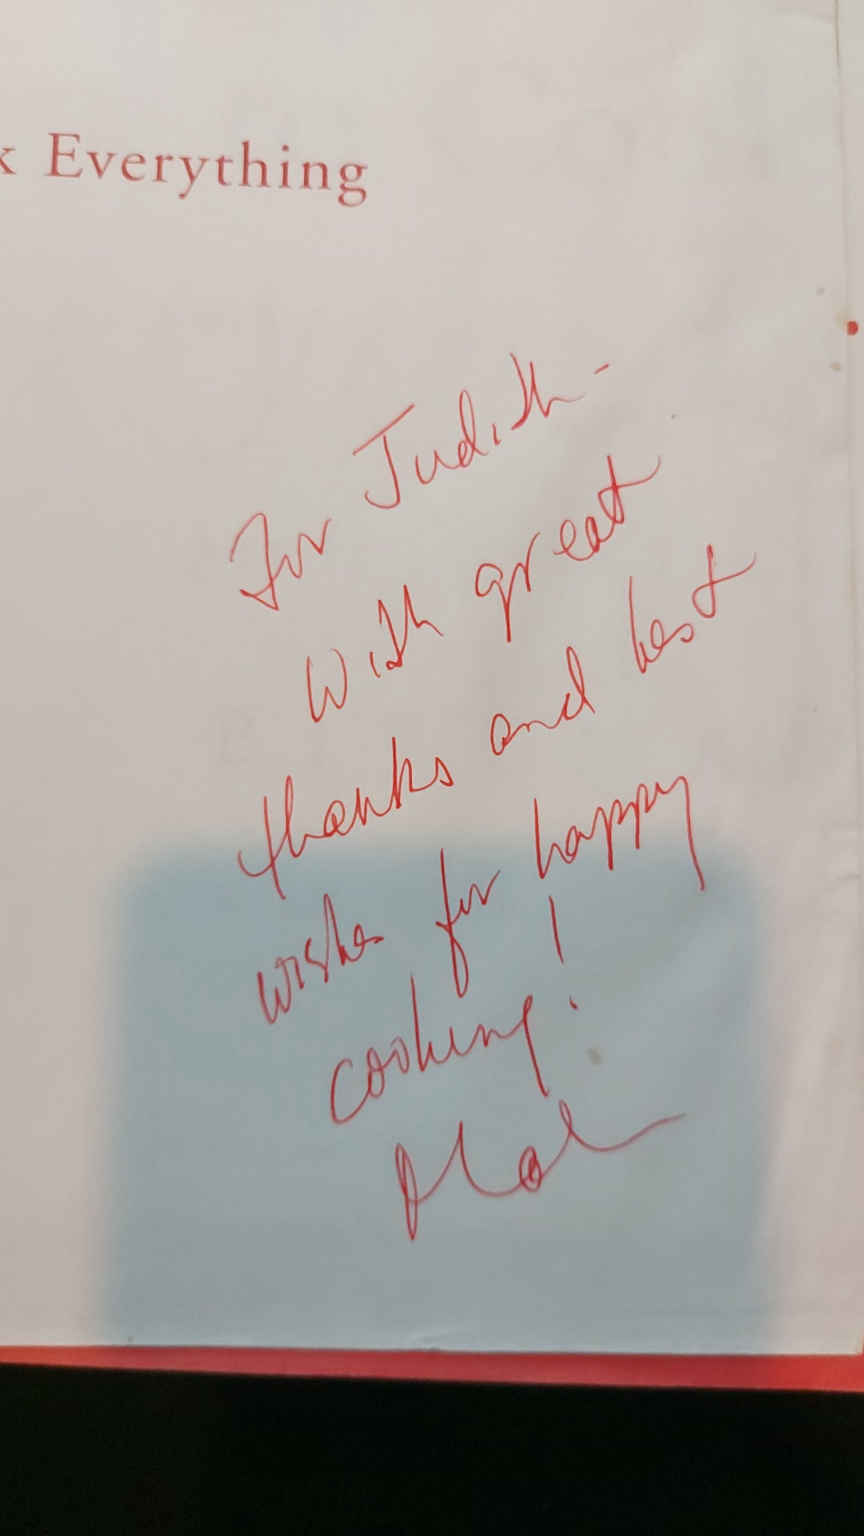 Everything
For Judith -
With great
thanks and best
wishes for happy
cooking!